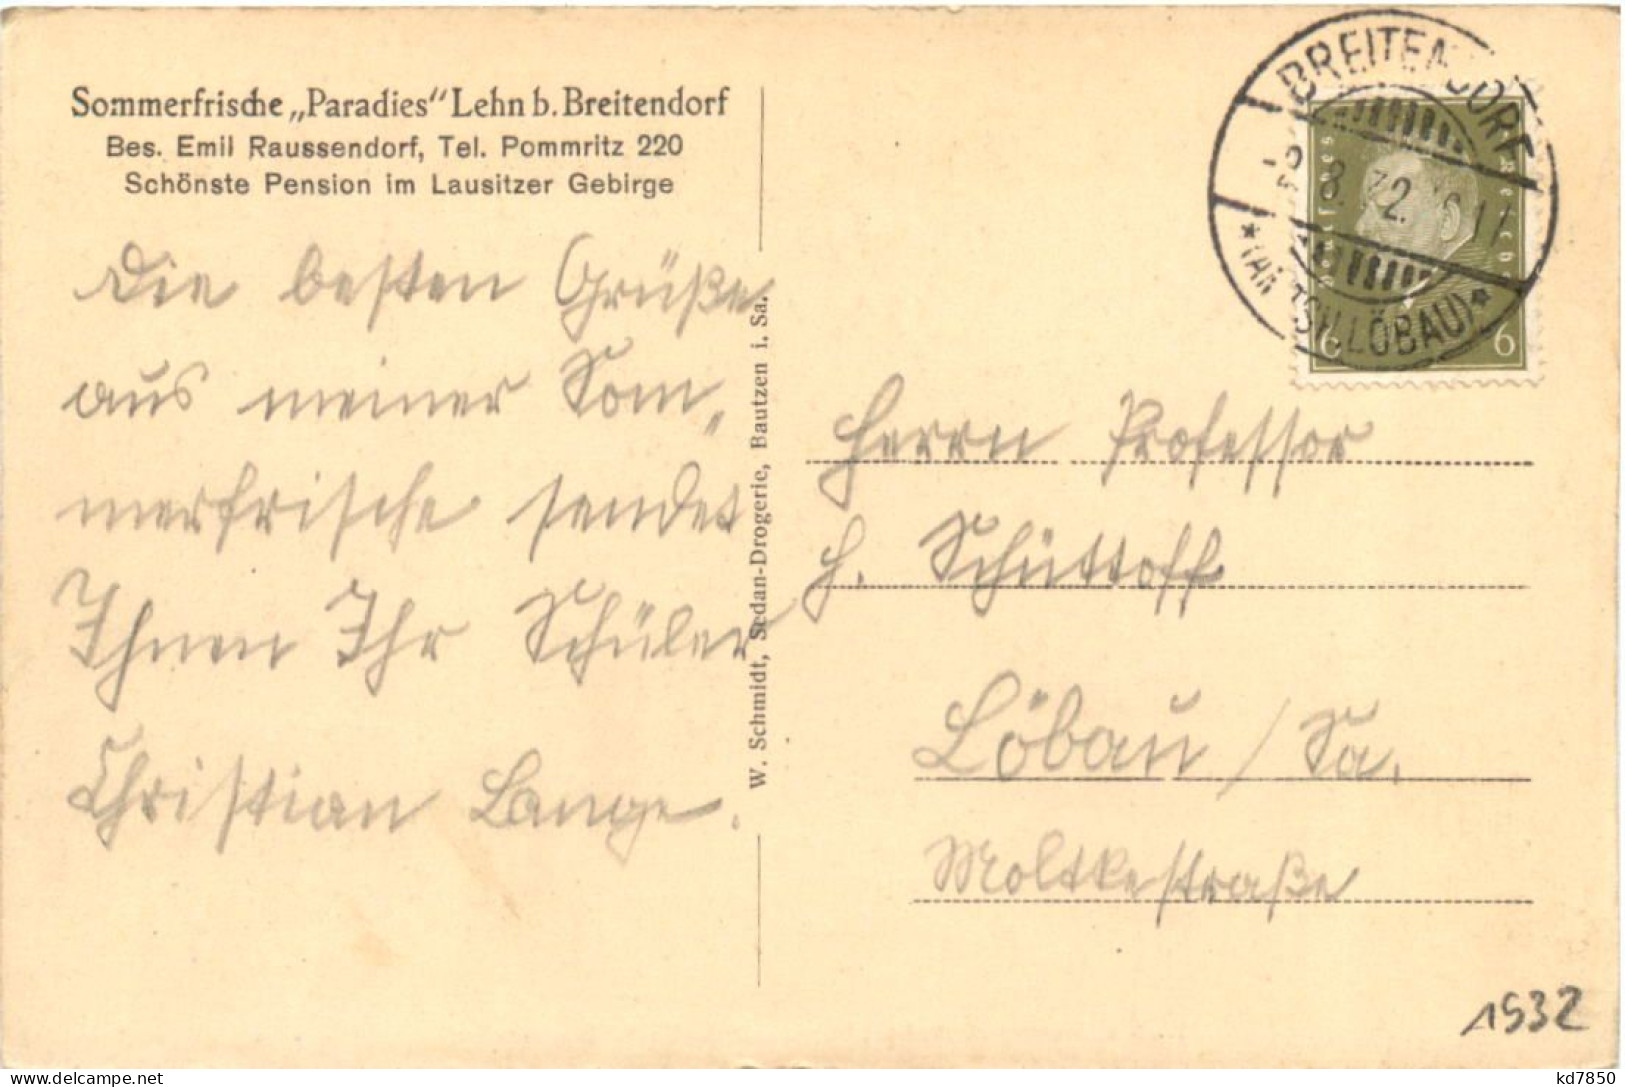 Sommerfrische „Paradies“ Lehn b. Breitendorf
Bes. Emil Raussendorf, Tel. Pommritz 220
Schönste Pension im Lausitzer Gebirge
Die besten Grüße
aus meiner Som„
merfrische sendet
Ihnen Ihr Schüler
Christian Lange.
W. Schmidt, Sedan-Drogerie, Bautzen i. Sa.
BREITENDORF
8. 32.
LÖBAU)
Deutsches Reich
6 6
Herrn Professor
H. Schüttoff
Löbau / Sa.
Moltkestraße
1932
kd7850